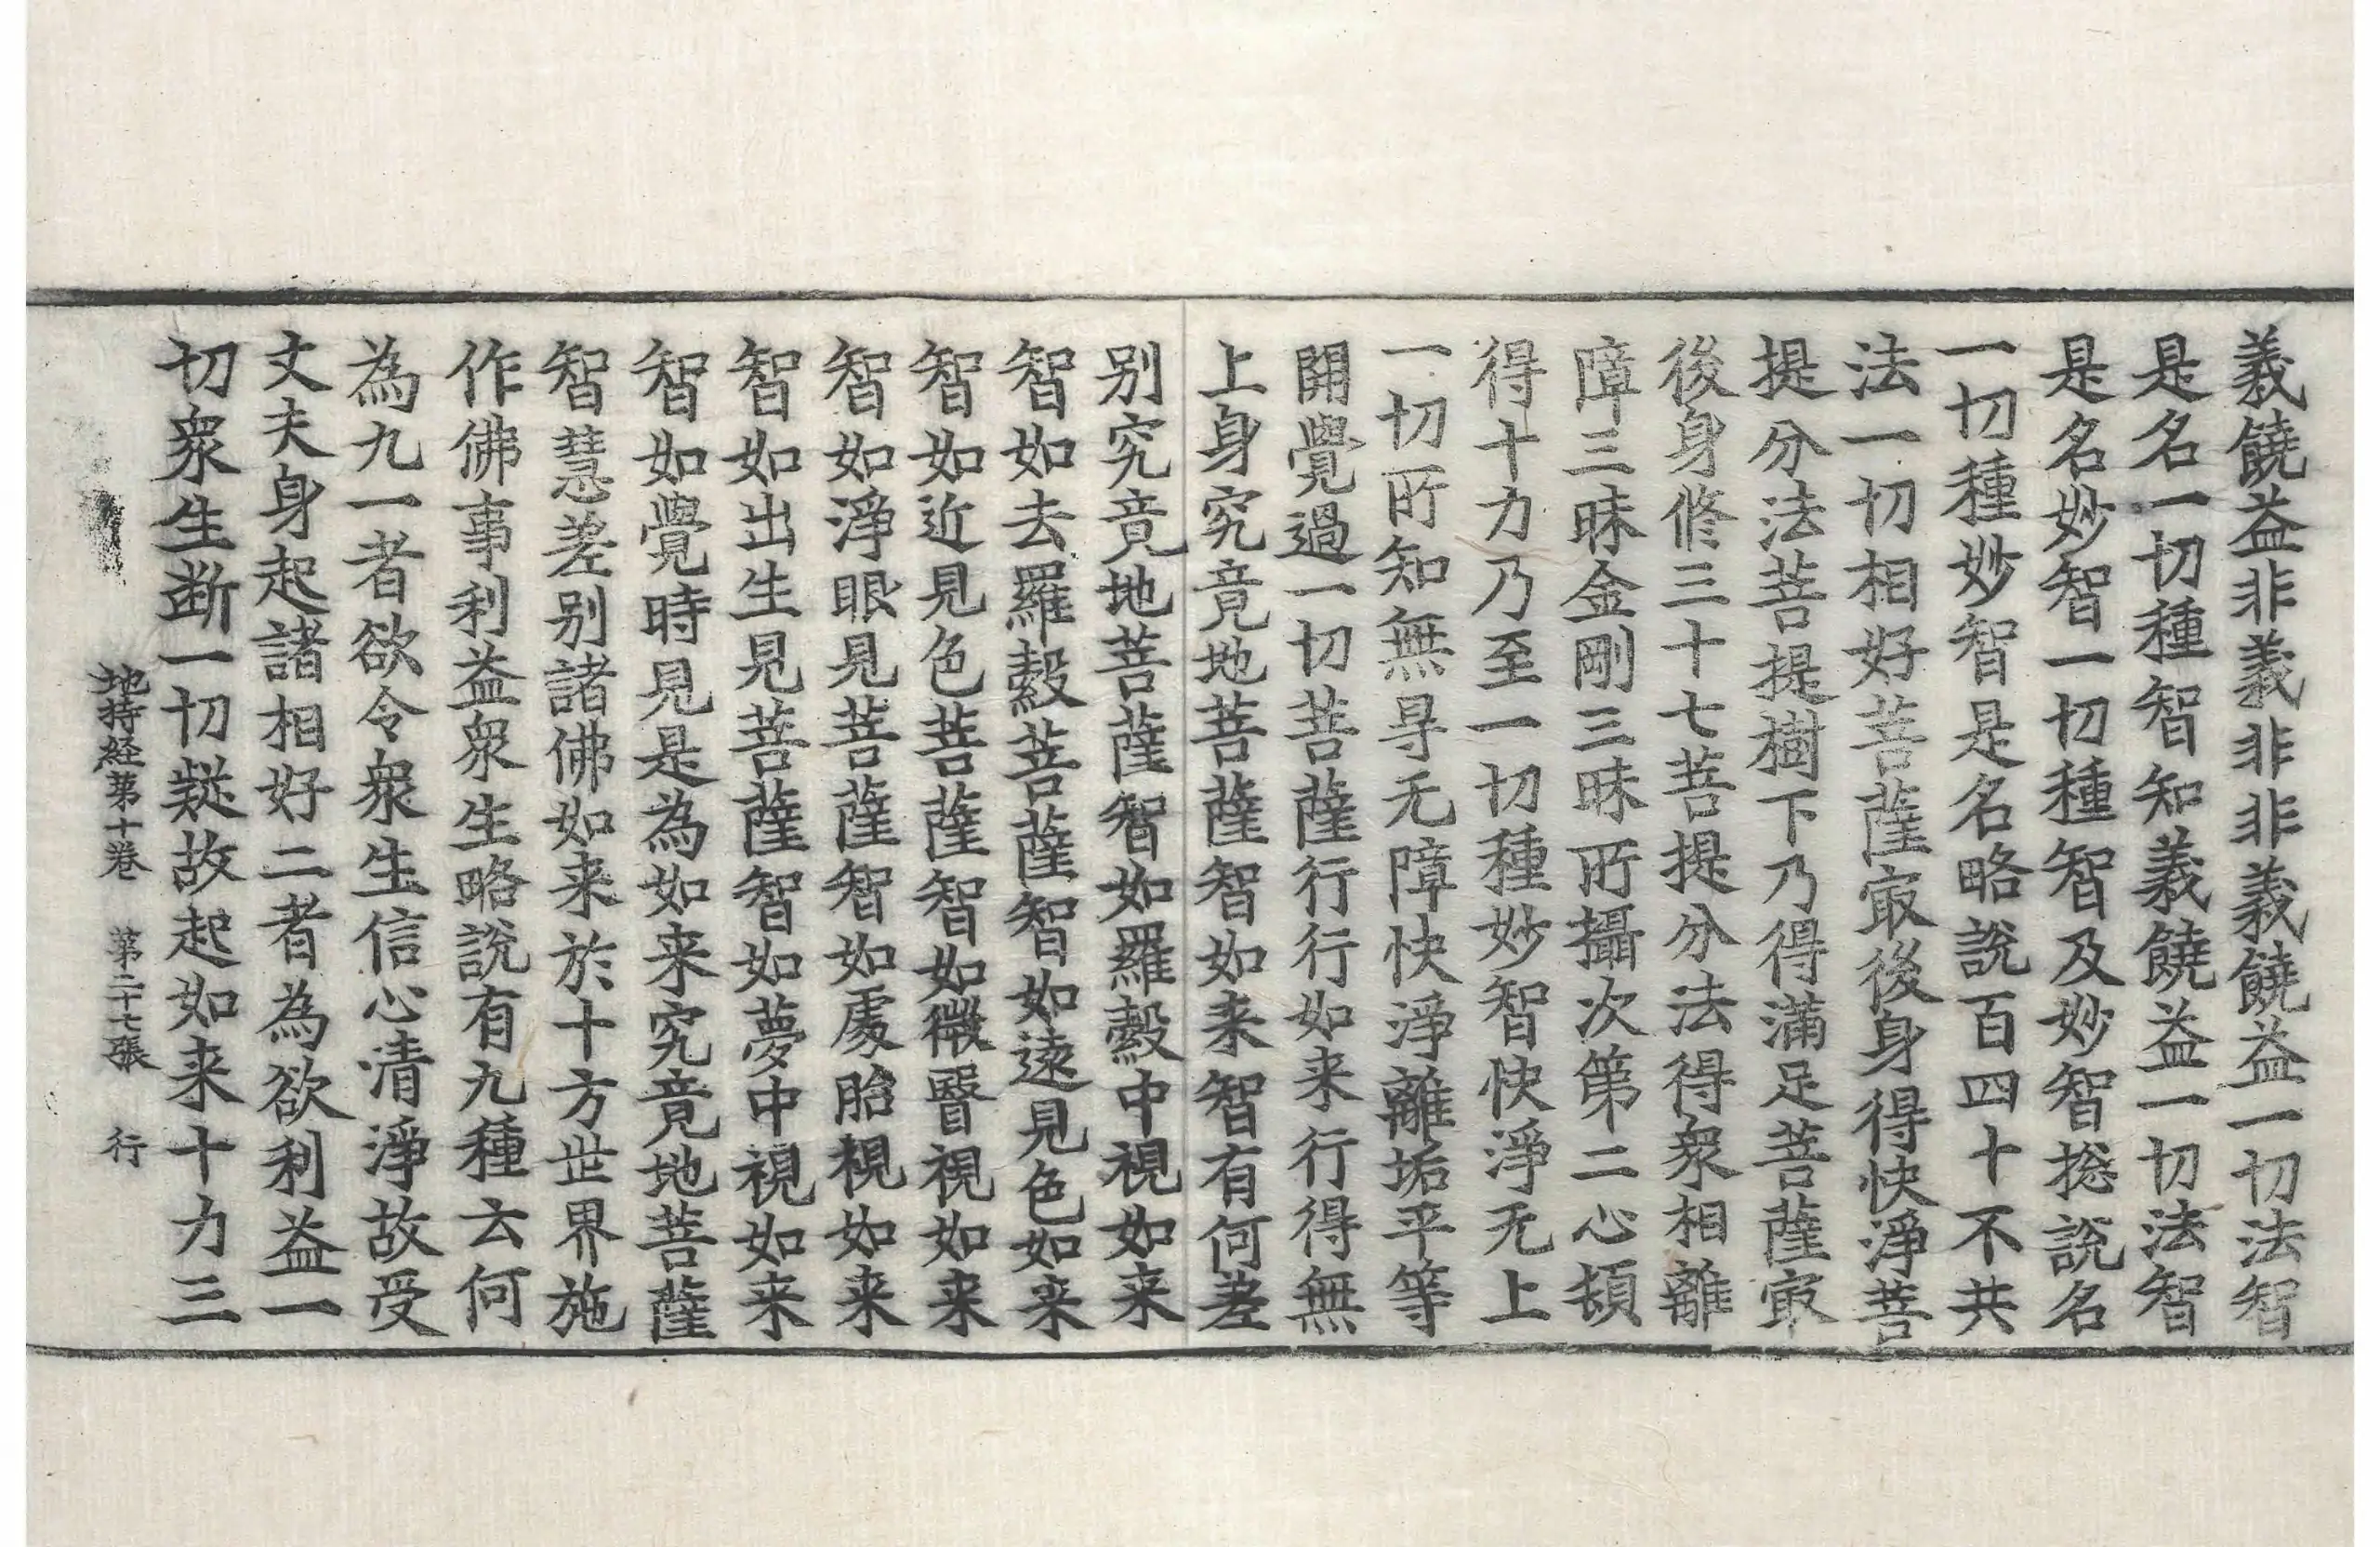 義饒益非義非非義饒益一切法智
是名一切種智知義饒益一切法智
是名妙智一切種智及妙智捴說名
一切種妙智是名略說百四十不共
法一切相好菩薩㝡後身得快淨菩
提分法菩提樹下乃得滿足菩薩㝡
後身修三十七菩提分法得衆相離
障三昧金剛三昧所攝次第二心頓
得十力乃至一切種妙智快淨无上
一切所知無㝵无障快淨離垢平等
開覺過一切菩薩行行如来行得無
上身究竟地菩薩智如来智有何差
別究竟地菩薩智如羅縠中視如来
智如去羅縠菩薩智如遠見色如来
智如近見色菩薩智如微瞖視如来
智如淨眼見菩薩智如處胎視如来
智如出生見菩薩智如夢中視如来
智如覺時見是為如来究竟地菩薩
智慧差别諸佛如来於十方世界施
作佛事利益衆生略說有九種云何
為九一者欲令衆生信心清淨故受
丈夫身起諸相好二者為欲利益一
切衆生断一切疑故起如来十力三
地持経第十卷　第二十七張　行